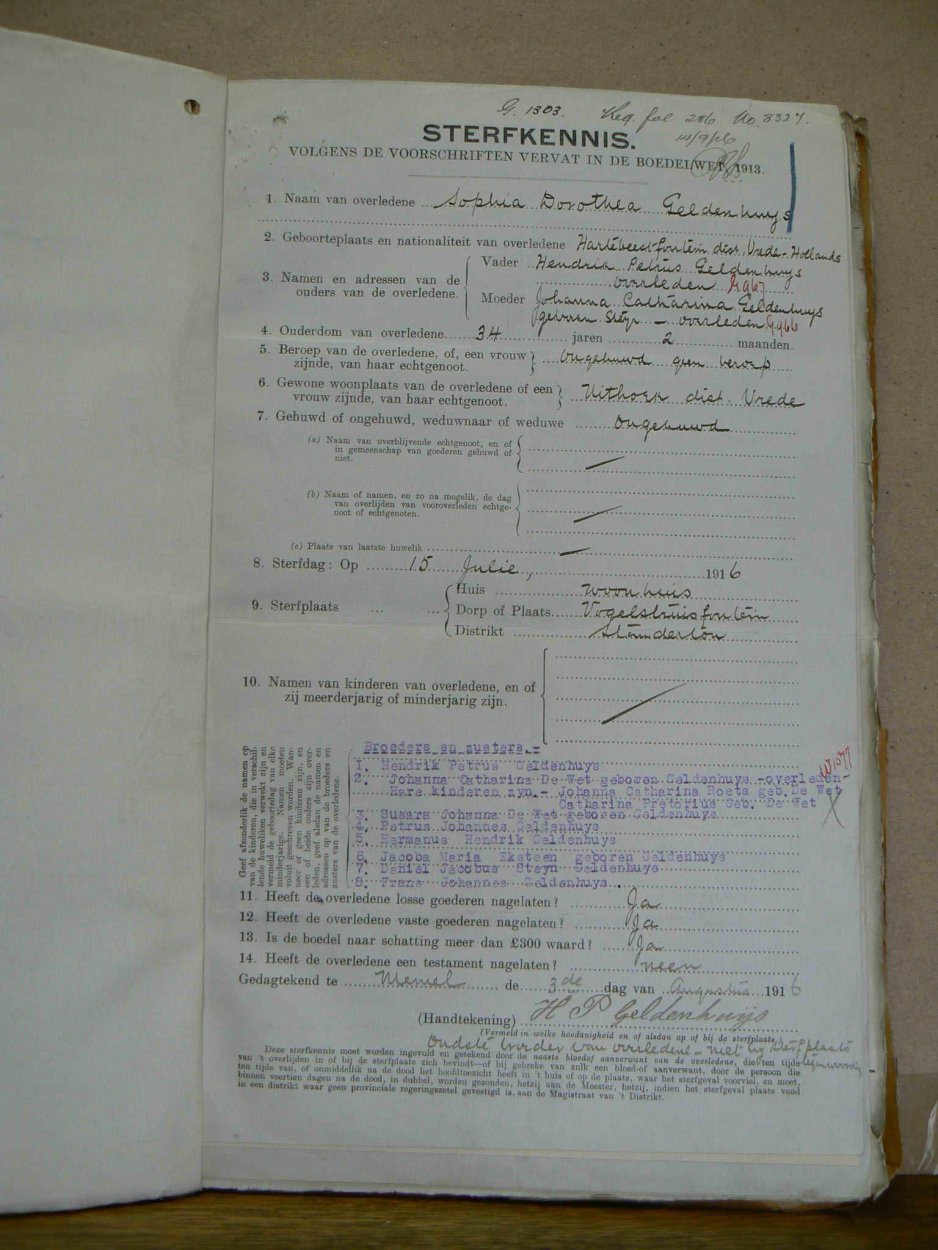 G. 1303. Reg. fol 286 No. 8327.
STERFKENNIS.
VOLGENS DE VOORSCHRIFTEN VERVAT IN DE BOEDELWET, 1913.
1. Naam van overledene Sophia Dorothea Geldenhuys
2. Geboorteplaats en nationaliteit van overledene Hartebeestfontein dist. Vrede - Hollands
3. Namen en adressen van de ouders van de overledene.
Vader Hendrik Petrus Geldenhuys
overleden
Moeder Johanna Catharina Geldenhuys
geboren Steyn - overleden
4. Ouderdom van overledene 34 jaren 2 maanden.
5. Beroep van de overledene, of, een vrouw
zijnde, van haar echtgenoot. Ongehuwd geen beroep
6. Gewone woonplaats van de overledene of een
vrouw zijnde, van haar echtgenoot. Uithoek dist. Vrede
7. Gehuwd of ongehuwd, weduwnaar of weduwe Ongehuwd
(a) Naam van overblijvende echtgenoot, en of
in gemeenschap van goederen gehuwd of
niet.
(b) Naam of namen, en zo na mogelik, de dag
van overlijden van vooroverleden echtge-
noot of echtgenoten.
(c) Plaats van laatste huwelik
8. Sterfdag: Op 15 Julie, 1916
9. Sterfplaats
Huis woonhuis
Dorp of Plaats Vogelstruisfontein
Distrikt Standerton
10. Namen van kinderen van overledene, en of
zij meerderjarig of minderjarig zijn.
Geef afzonderlik de namen op
van de kinderen, die in verschil-
lende huweliken verwekt zijn en
vermeld de geboortedag van elke
minderjarige. Namen moeten
voluit geschreven worden. Wan-
neer er geen kinderen zijn, en
een of beide ouders zijn over-
leden, geef alsdan de namen en
adressen op van de broeders en
zusters van de overledene.
Broeders en zusters.-
1. Hendrik Petrus Geldenhuys
2. Johanna Catharina De Wet geboren Geldenhuys.-overleden-
Hare kinderen zyn.- Johanna Catharina Roets geb. De Wet
Catharina Pretorius Geb. De Wet
3. Susara Johanna De Wet geboren Geldenhuys
4. Petrus Johannes Geldenhuys
5. Hermanus Hendrik Geldenhuys
6. Jacoba Maria Eksteen geboren Geldenhuys
7. Daniel Jacobus Steyn Geldenhuys
8. Frans Johannes Geldenhuys.
11. Heeft de overledene losse goederen nagelaten? Ja
12. Heeft de overledene vaste goederen nagelaten? Ja
13. Is de boedel naar schatting meer dan £300 waard? Ja
14. Heeft de overledene een testament nagelaten? neen
Gedagtekend te Memel de 3de dag van Augustus 1916
(Handtekening) H P Geldenhuijs
(Vermeld in welke hoedanigheid en of alsdan op of bij de sterfplaats)
Oudste broeder van overledene - niet bij sterfplaats
Deze sterfkennis moet worden ingevuld en getekend door de naaste bloedof aanverwant van de overledene, die ten tijde
van 't overlijden in of bij de sterfplaats zich bevindt—of bij gebreke van zulk een bloed-of aanverwant, door de persoon die
ten tijde van, of onmiddellik na de dood het hoofdtoezicht heeft in 't huis of op de plaats, waar het sterfgeval voorviel, en moet,
binnen veertien dagen na de dood, in dubbel, worden gezonden, hetzij aan de Meester, hetzij, indien het sterfgeval plaats vond
in een distrikt waar geen provinciale regeringszetel gevestigd is, aan de Magistraat van 't Distrikt.